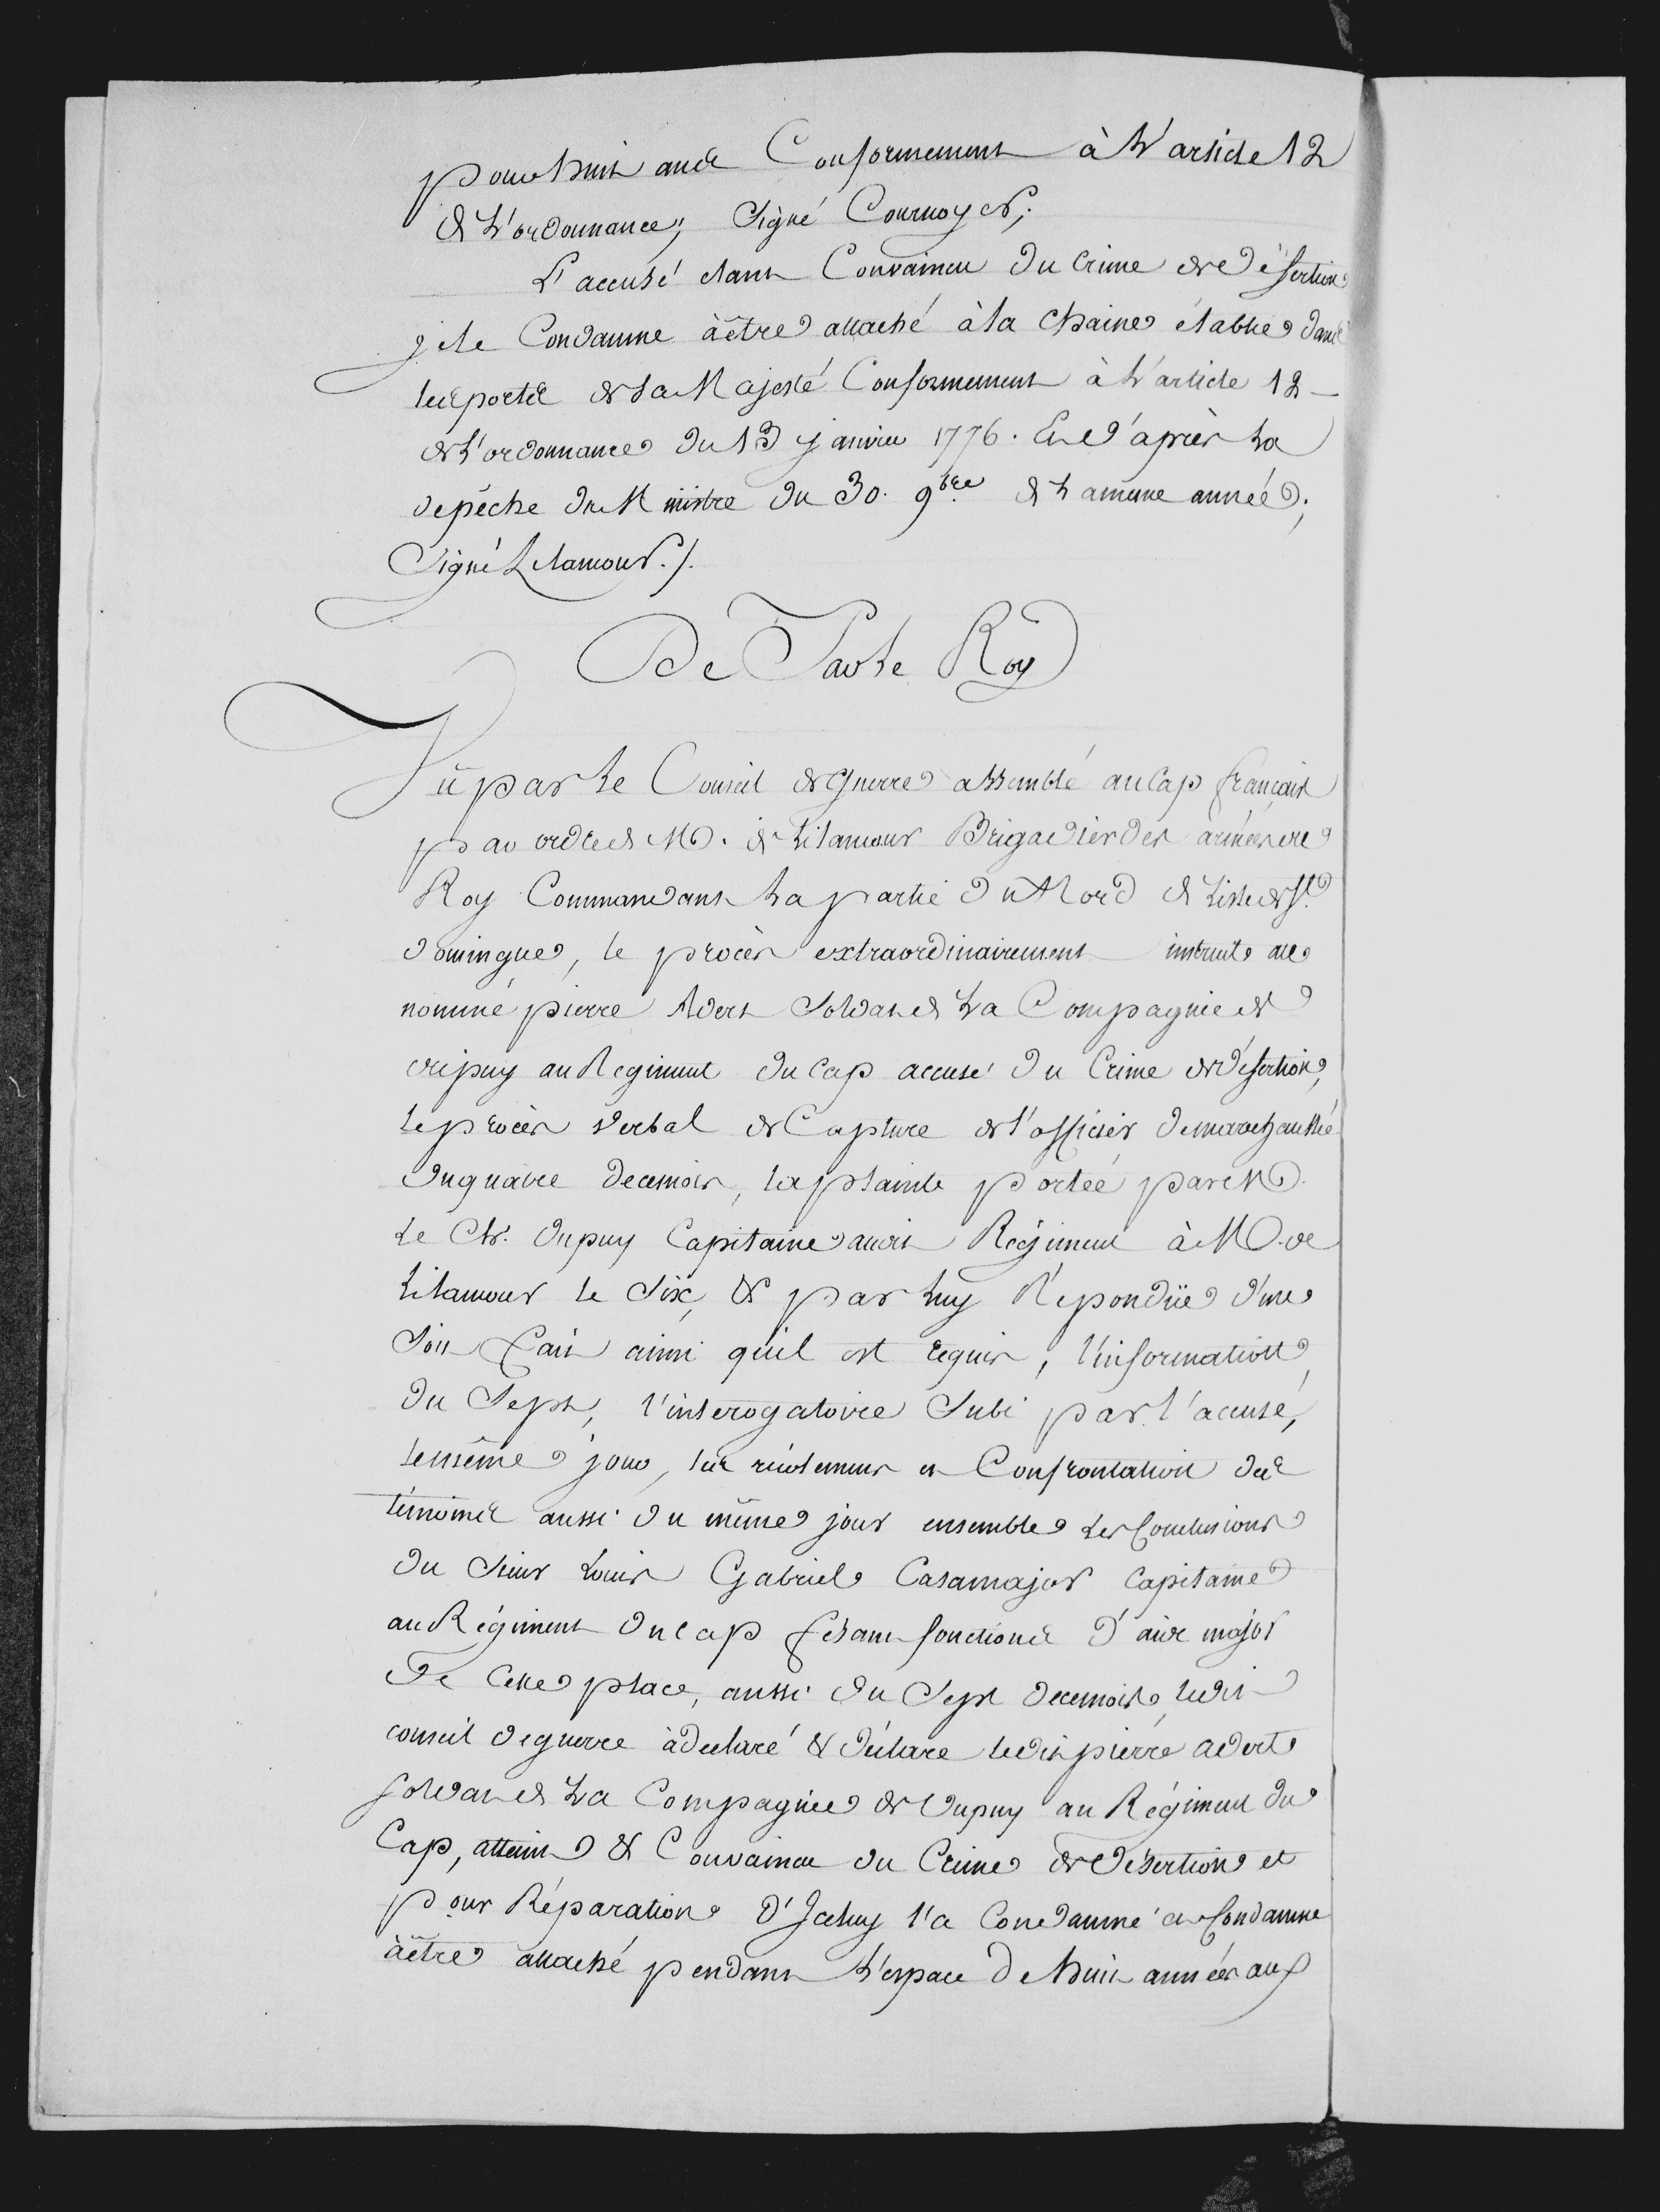 pour huit ans Conformement à L'article 12
de L'ordonnance; Signé Cournoyer;
L'accusé étant Convaincu du Crime de désertion
je le Condamne à être attaché à la chaine établie dans
les ports de Sa Majesté Conformement à L'article 12
de L'ordonnance du 13 janvier 1776. Et d'après La
depêche du Ministre du 30. 9bre de La meme année;
Signé Lilancour./.
De Par Le Roy
Vû par Le Conseil de Guerre assemblé au Cap français
par ordre de M. de Lilancour Brigadier des armées du
Roy Commandant La partie du Nord de L'isle de St.
domingue, le procès extraordinairement instruit au
nommé pierre Advert Soldat de La Compagnie de
dupuy au Regiment du Cap accusé du Crime de désertion,
Le procès verbal de Capture de l'officier de marechaussée
du quatre de ce mois, la plainte portée par M.
Le Chr. Dupuy Capitaine audit Régiment à M. de
Lilancour le Six, & par Luy Répondüe d'une
Soit fait ainsi qu'il est requis, l'information
du Sept, l'interogatoire Subi par l'accusé,
le même jour, les récolement et Confrontation des
témoins aussi du même jour ensemble Les Conclusions
du Sieur Louis Gabriel Casamajor Capitaine
au Régiment du Cap fesant fonctions d'aide major
De Cette place, aussi du Sept de ce mois, Ledit
conseil de guerre à declaré & déclare ledit pierre advert
soldat de La Compagnie de Dupuy au Régiment du
Cap, atteint & Convaincu du Crime de désertion et
pour Réparation d'Iceluy l'a Condamné et Condamne
à être attaché pendant L'espace de huit années aux